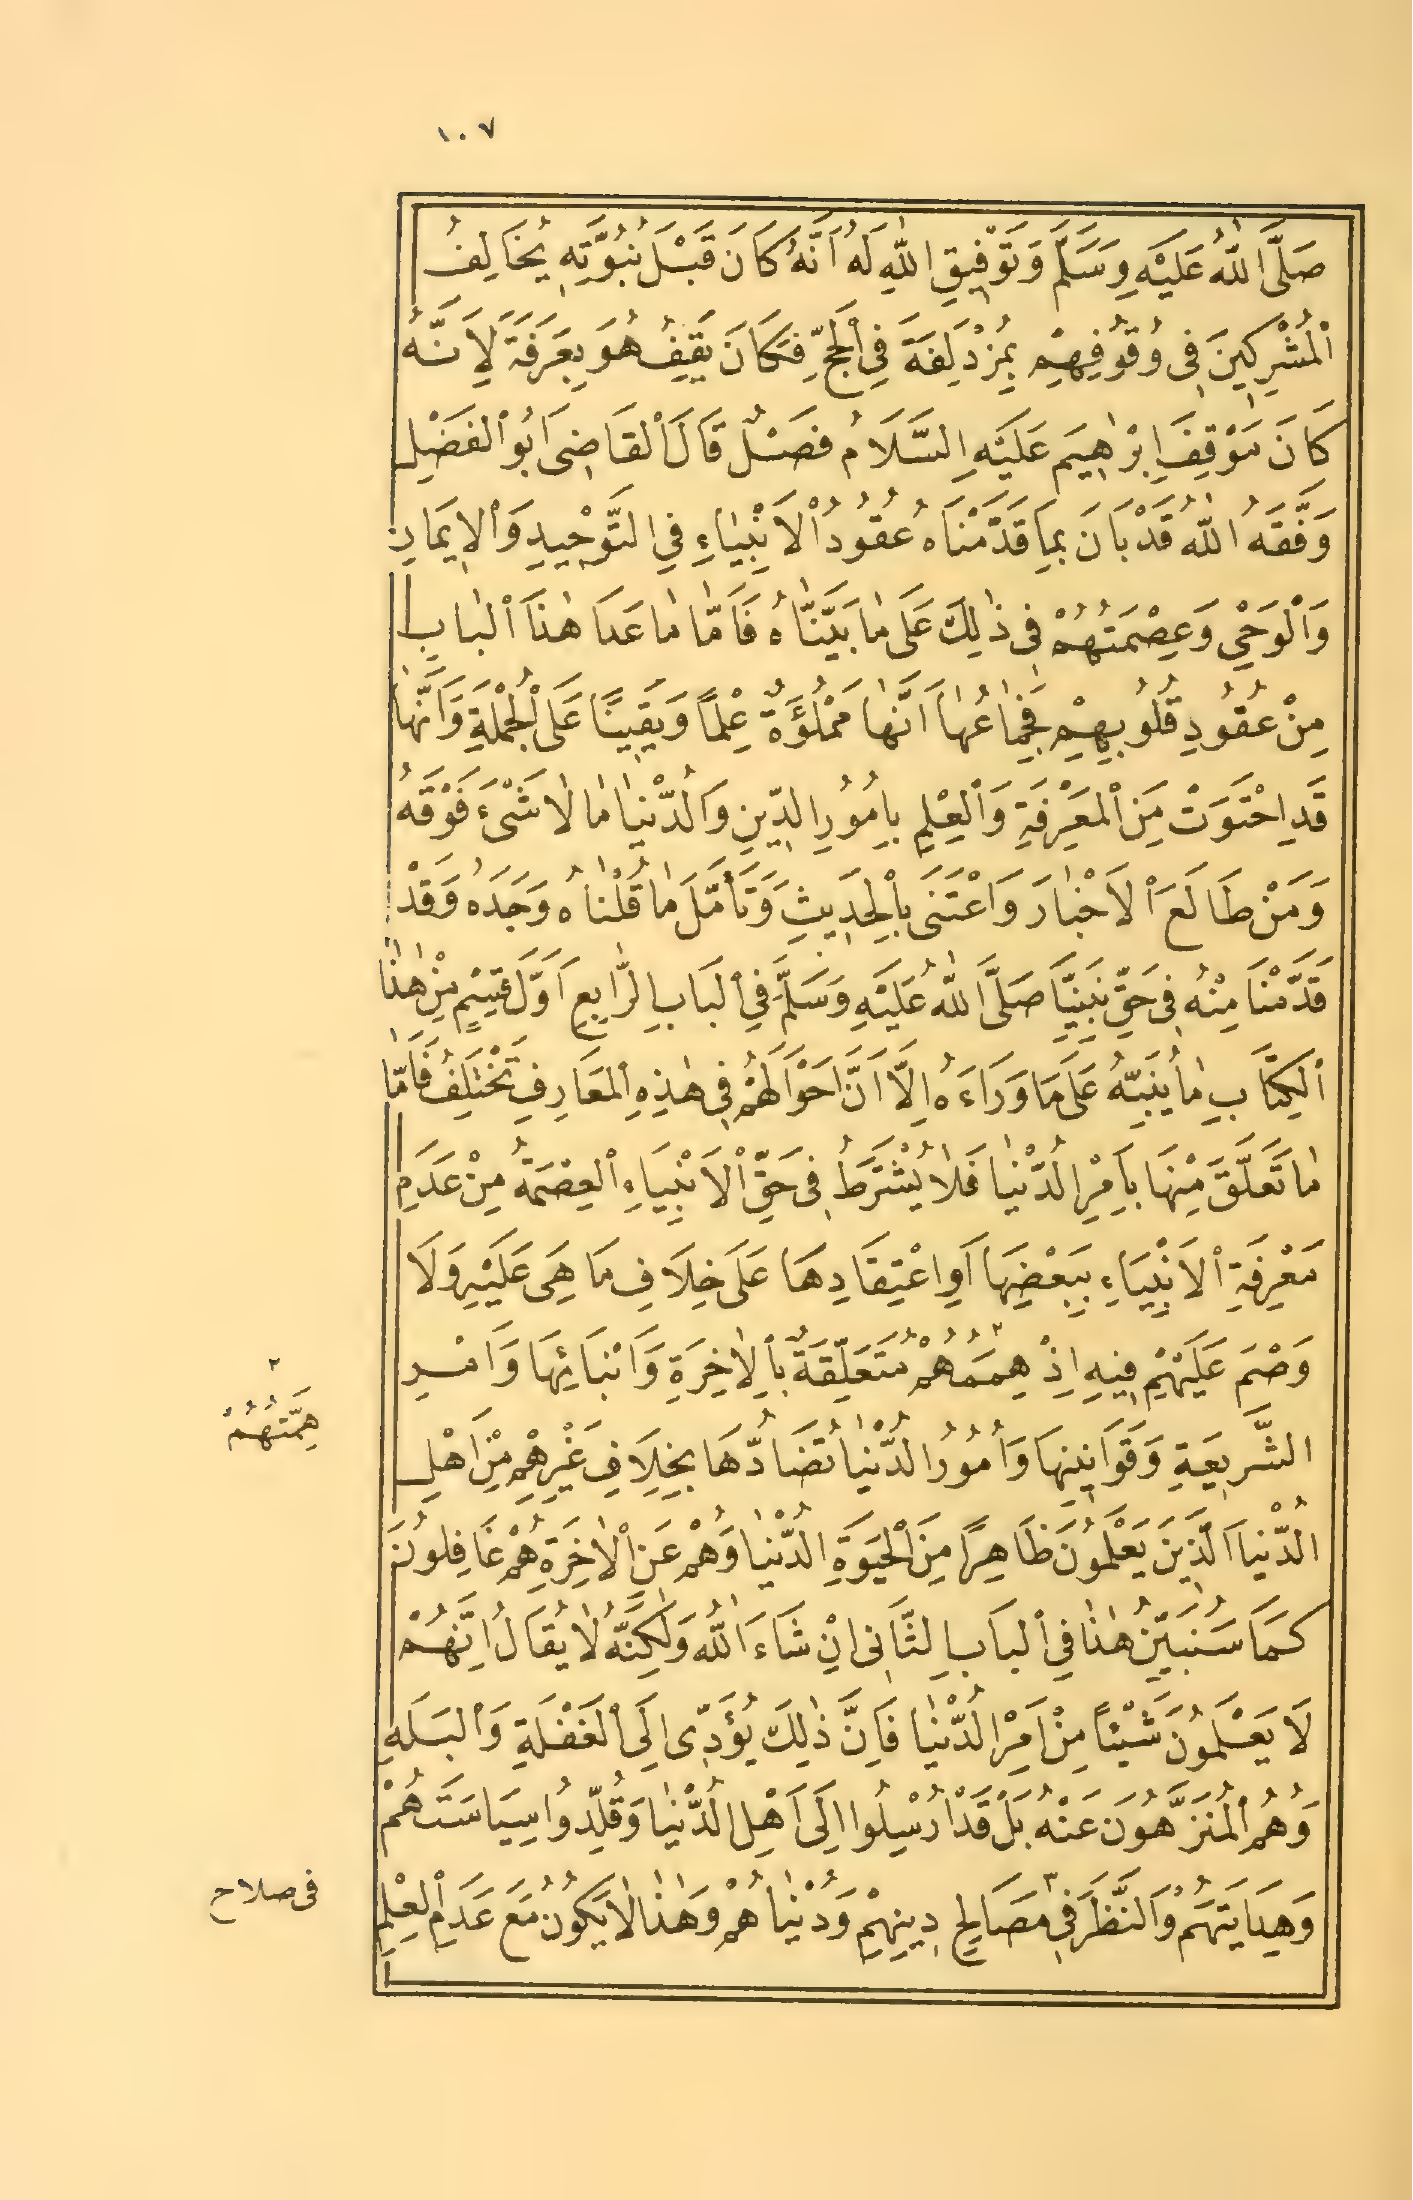 ١٠٧
صَلَّى اللهُ عَلَيْهِ وَسَلَّمَ وَتَوْفِيقِ اللهِ لَهُ اَنَّهُ كَانَ قَبْلَ نُبُوَّتِهِ يُخَالِفُ
الْمُشْرِكِينَ فِى وُقُوفِهِمْ بِمُزْدَلِفَةَ فِى الْحَجِّ فَكَانَ يَقِفُ هُوَ بِعَرَفَةَ لِاَنَّهُ
كَانَ مَوْقِفَ اِبْرٰهِيمَ عَلَيْهِ السَّلَامُ فَصْلٌ قَالَ الْقَاضِى اَبُو الْفَضْلِ
وَفَّقَهُ اللهُ قَدْ بَانَ بِمَا قَدَّمْنَاهُ عُقُودُ الْاَنْبِيٰاءِ فِى التَّوْحِيدِ وَالْاِيمَانِ
وَالْوَحْيِ وَعِصْمَتُهُمْ فِى ذٰلِكَ عَلَى مٰا بَيَّنَّاهُ فَاَمَّا مٰا عَدَا هٰذَا الْبٰابِ
مِنْ عُقُودِ قُلُوبِهِمْ فَجِمٰاعُهٰا اَنَّهٰا مَمْلُؤَةٌ عِلْمًا وَيَقِينًا عَلَى الْجُمْلَةِ وَاَنَّهٰا
قَدِ احْتَوَتْ مِنَ الْمَعْرِفَةِ وَالْعِلْمِ بِاُمُورِ الدِّينِ وَالدُّنْيٰا مٰا لٰا شَىْءَ فَوْقَهُ
وَمَنْ طَالَعَ الْاَخْبٰارَ وَاعْتَنَى بِالْحَدِيثِ وَتَأَمَّلَ مٰا قُلْنٰاهُ وَجَدَهُ وَقَدْ
قَدَّمْنَا مِنْهُ فِى حَقِّ نَبِيِّنَا صَلَّى اللهُ عَلَيْهِ وَسَلَّمَ فِى الْبَابِ الرَّابِعِ اَوَّلَ قِسْمٍ مِنْ هٰذَا
الْكِتَابِ مٰا يُنَبِّهُ عَلَى مَا وَرَاءَهُ اِلَّا اَنَّ اَحْوَالَهُمْ فِى هٰذِهِ الْمَعَارِفِ تَخْتَلِفُ فَاَمَّا
مٰا تَعَلَّقَ مِنْهَا بِاَمْرِ الدُّنْيٰا فَلٰا يُشْتَرَطُ فِى حَقِّ الْاَنْبِيَاءِ الْعِصْمَةُ مِنْ عَدَمِ
مَعْرِفَةِ الْاَنْبِيَاءِ بِبَعْضِهَا اَوِ اعْتِقَادِهَا عَلَى خِلَافِ مَا هِىَ عَلَيْهِ وَلَا
وَصْمَ عَلَيْهِمْ فِيهِ اِذْ هِمَمُهُمْ ٢ مُتَعَلِّقَةٌ بِالْاٰخِرَةِ وَاَنْبَائِهَا وَاَمْرِ
الشَّرِيعَةِ وَقَوَانِينِهَا وَاُمُورُ الدُّنْيٰا تُضَادُّهَا بِخِلَافِ غَيْرِهِمْ مِنْ اَهْلِ
الدُّنْيَا الَّذِينَ يَعْلَمُونَ ظَاهِرًا مِنَ الْحَيٰوةِ الدُّنْيٰا وَهُمْ عَنِ الْاٰخِرَةِ هُمْ غَافِلُونَ
كَمَا سَنُبَيِّنُ هٰذَا فِى الْبَابِ الثَّانِى اِنْ شَاءَ اللهُ وَلٰكِنَّهُ لٰا يُقَالُ اِنَّهُمْ
لَا يَعْلَمُونَ شَيْئًا مِنْ اَمْرِ الدُّنْيٰا فَاِنَّ ذٰلِكَ يُؤَدِّى اِلَى الْغَفْلَةِ وَالْبَلَهِ
وَهُمُ الْمُنَزَّهُونَ عَنْهُ بَلْ قَدْ اُرْسِلُوا اِلَى اَهْلِ الدُّنْيٰا وَقُلِّدُوا سِيَاسَتَهُمْ
وَهِدَايَتَهُمْ وَالنَّظَرَ فِى ٣ مَصَالِحِ دِينِهِمْ وَدُنْيٰاهُمْ وَهٰذٰا لٰا يَكُونُ مَعَ عَدَمِ الْعِلْمِ
٢
هِمَّتُهُمْ
فى صلاح